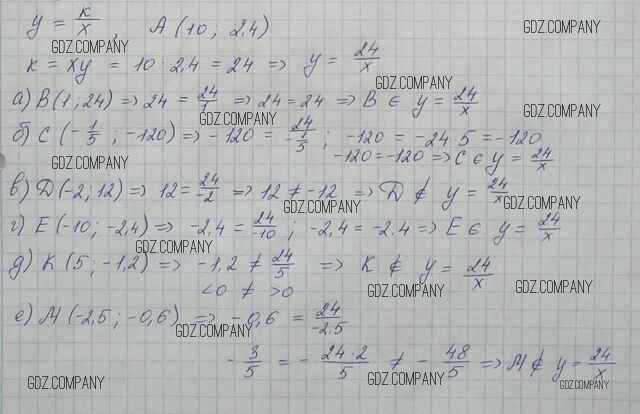 y = k/x , A (10; 2,4)
GDZ.COMPANY
GDZ.COMPANY
k = xy = 10 · 2,4 = 24 => y = 24/x
GDZ.COMPANY
а) B(1; 24) => 24 = 24/1 => 24 = 24 => B ∈ y = 24/x
GDZ.COMPANY
GDZ.COMPANY
б) C (-1/5 ; -120) => -120 = 24/-1/5 ; -120 = -24·5 = -120
-120 = -120 => C ∈ y = 24/x
GDZ.COMPANY
в) D(-2; 12) => 12 = 24/-2 => 12 ≠ -12 => D ∉ y = 24/x
GDZ.COMPANY
GDZ.COMPANY
г) E (-10; -2,4) => -2,4 = 24/-10 ; -2,4 = -2.4 => E ∈ y = 24/x
GDZ.COMPANY
д) K (5; -1,2) => -1,2 ≠ 24/5 => K ∉ y = 24/x
<0 ≠ >0
GDZ.COMPANY
GDZ.COMPANY
е) M (-2,5; -0,6) => -0,6 = 24/-2.5
GDZ.COMPANY
- 3/5 = - 24·2/5 ≠ - 48/5 => M ∉ y = 24/x
GDZ.COMPANY
GDZ.COMPANY
GDZ.COMPANY